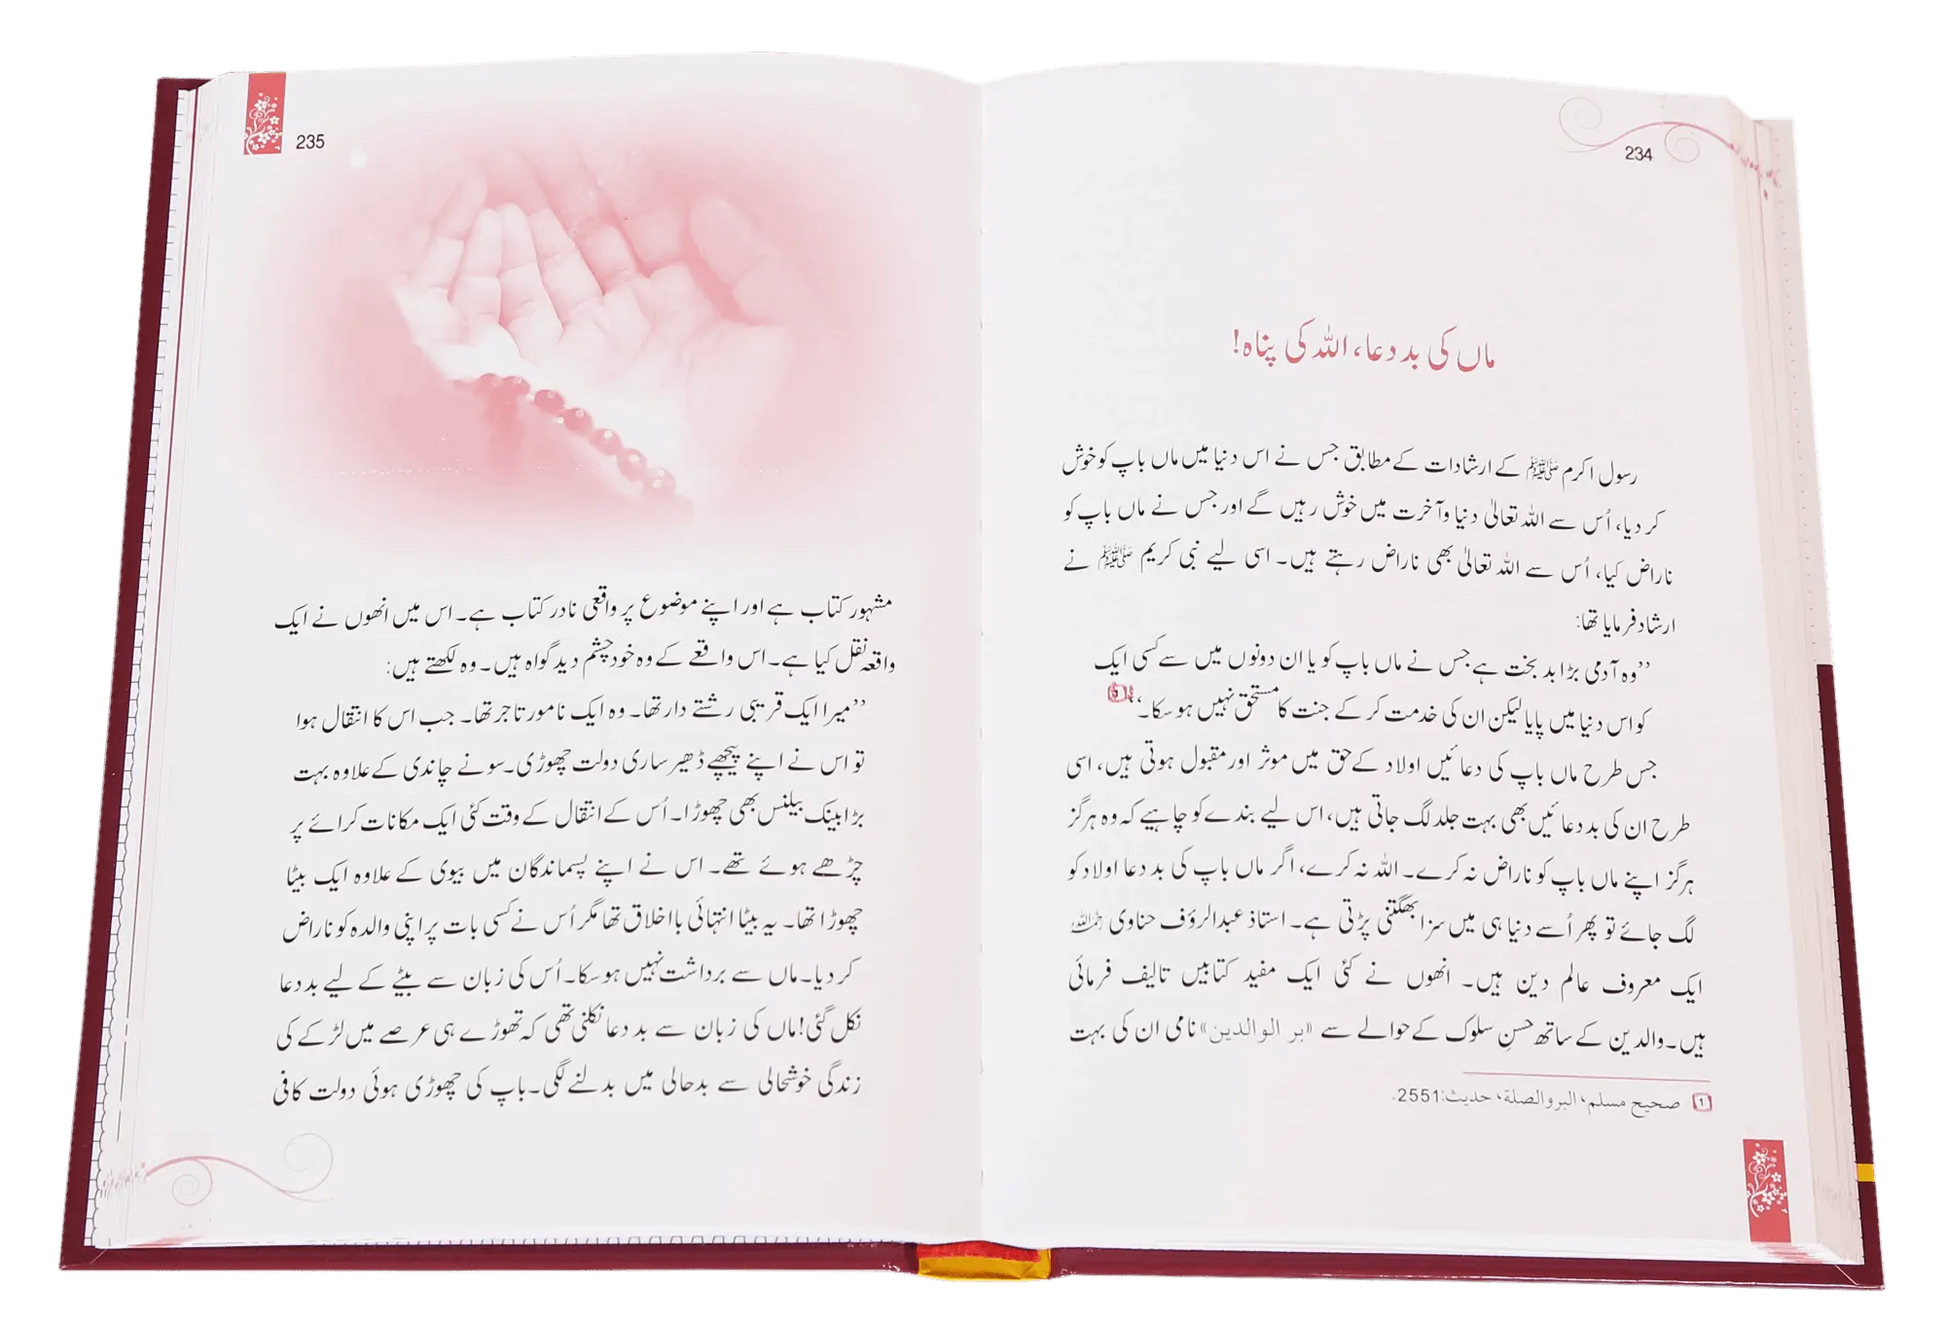 234
ماں کی بد دعا، اللہ کی پناہ!
رسول اکرم ﷺ کے ارشادات کے مطابق جس نے اس دنیا میں ماں باپ کو خوش
کر دیا، اُس سے اللہ تعالیٰ دنیا و آخرت میں خوش رہیں گے اور جس نے ماں باپ کو
ناراض کیا، اُس سے اللہ تعالیٰ بھی ناراض رہتے ہیں۔ اسی لیے نبی کریم ﷺ نے
ارشاد فرمایا تھا:
’’وہ آدمی بڑا بد بخت ہے جس نے ماں باپ کو یا ان دونوں میں سے کسی ایک
کو اس دنیا میں پایا لیکن ان کی خدمت کر کے جنت کا مستحق نہیں ہو سکا۔‘‘ 1
جس طرح ماں باپ کی دعائیں اولاد کے حق میں موثر اور مقبول ہوتی ہیں، اسی
طرح ان کی بد دعائیں بھی بہت جلد لگ جاتی ہیں، اس لیے بندے کو چاہیے کہ وہ ہرگز
ہرگز اپنے ماں باپ کو ناراض نہ کرے۔ اللہ نہ کرے، اگر ماں باپ کی بد دعا اولاد کو
لگ جائے تو پھر اُسے دنیا ہی میں سزا بھگتنی پڑتی ہے۔ استاذ عبدالرؤف حناوی رحمہ اللہ
ایک معروف عالم دین ہیں۔ انھوں نے کئی ایک مفید کتابیں تالیف فرمائی
ہیں۔ والدین کے ساتھ حسنِ سلوک کے حوالے سے «بر الوالدین» نامی ان کی بہت
1 صحیح مسلم، البر والصلة، حدیث:2551.
235
مشہور کتاب ہے اور اپنے موضوع پر واقعی نادر کتاب ہے۔ اس میں انھوں نے ایک
واقعہ نقل کیا ہے۔ اس واقعے کے وہ خود چشم دید گواہ ہیں۔ وہ لکھتے ہیں:
’’میرا ایک قریبی رشتے دار تھا۔ وہ ایک نامور تاجر تھا۔ جب اس کا انتقال ہوا
تو اس نے اپنے پیچھے ڈھیر ساری دولت چھوڑی۔ سونے چاندی کے علاوہ بہت
بڑا بینک بیلنس بھی چھوڑا۔ اُس کے انتقال کے وقت کئی ایک مکانات کرائے پر
چڑھے ہوئے تھے۔ اس نے اپنے پسماندگان میں بیوی کے علاوہ ایک بیٹا
چھوڑا تھا۔ یہ بیٹا انتہائی بااخلاق تھا مگر اُس نے کسی بات پر اپنی والدہ کو ناراض
کر دیا۔ ماں سے برداشت نہیں ہو سکا۔ اُس کی زبان سے بیٹے کے لیے بد دعا
نکل گئی! ماں کی زبان سے بد دعا نکلنی تھی کہ تھوڑے ہی عرصے میں لڑکے کی
زندگی خوشحالی سے بدحالی میں بدلنے لگی۔ باپ کی چھوڑی ہوئی دولت کافی